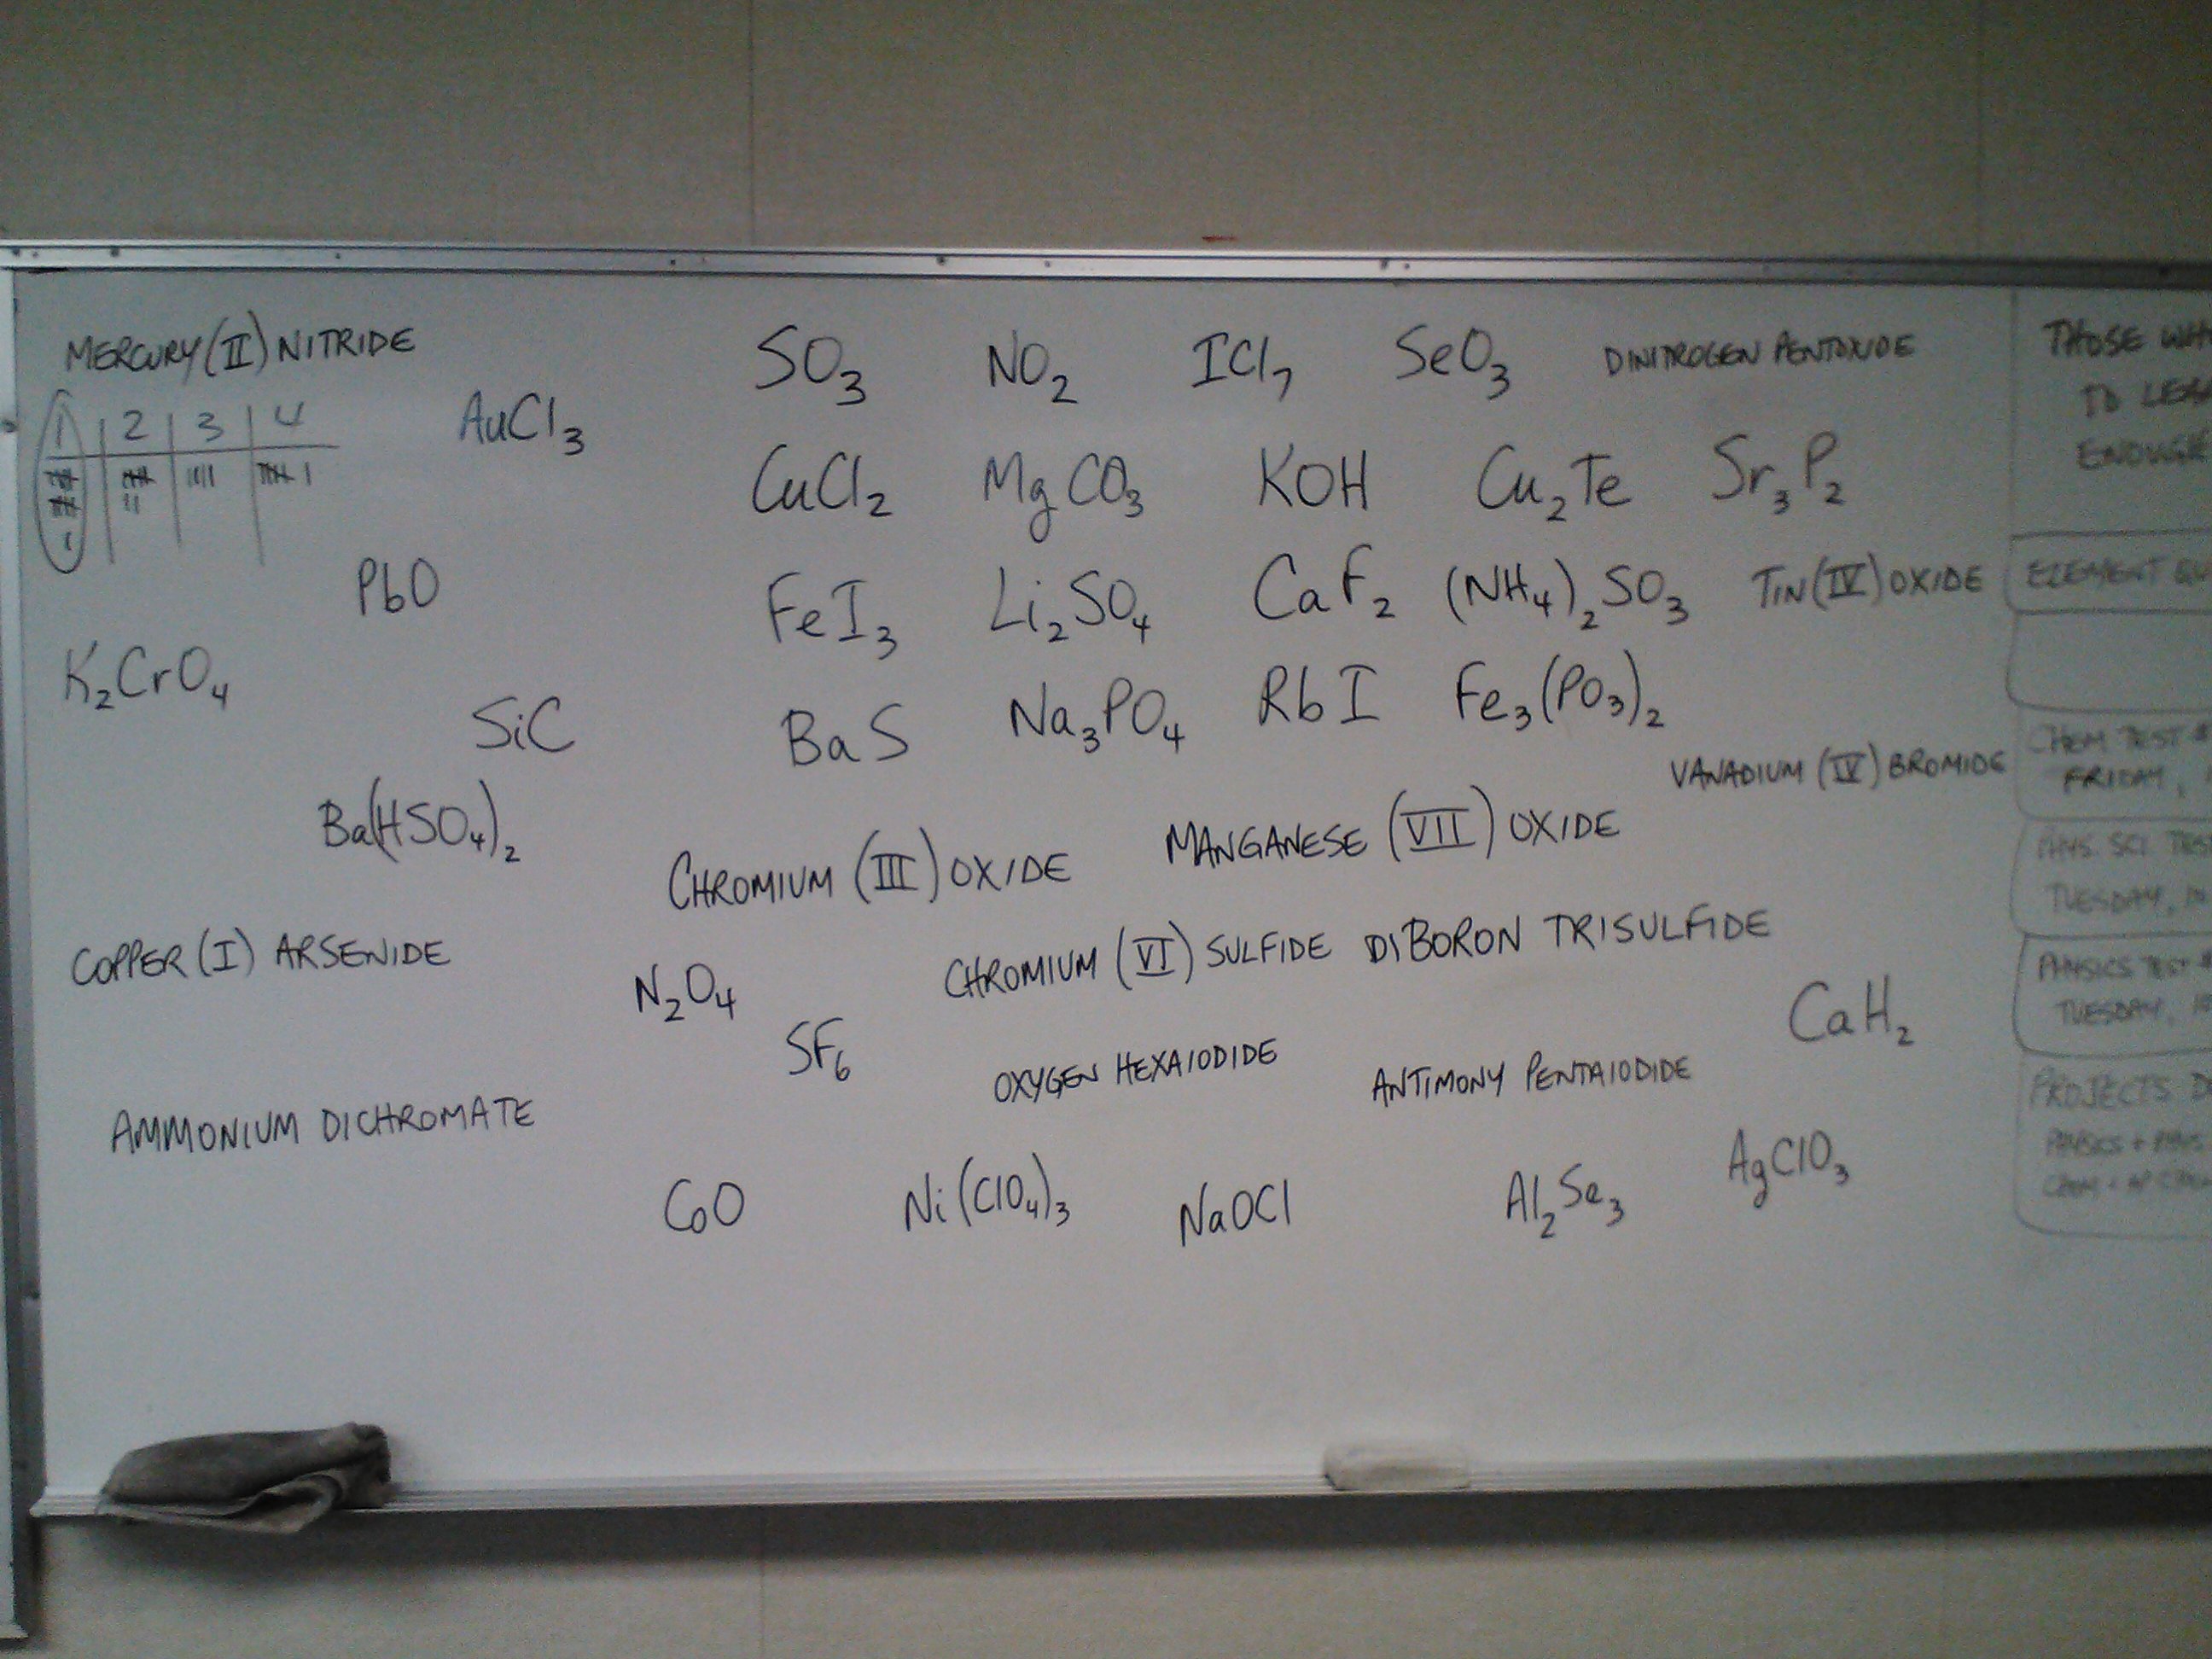 MERCURY (II) NITRIDE
1 2 3 4
AuCl₃
PbO
K₂CrO₄
SiC
Ba(HSO₄)₂
COPPER (I) ARSENIDE
AMMONIUM DICHROMATE
SO₃ NO₂ ICl₇ SeO₃ DINITROGEN PENTOXIDE
CuCl₂ MgCO₃ KOH Cu₂Te Sr₃P₂
FeI₃ Li₂SO₄ CaF₂ (NH₄)₂SO₃ TIN (IV) OXIDE
BaS Na₃PO₄ RbI Fe₃(PO₃)₂
VANADIUM (IV) BROMIDE
CHROMIUM (III) OXIDE MANGANESE (VII) OXIDE
N₂O₄ CHROMIUM (VI) SULFIDE DIBORON TRISULFIDE
SF₆ OXYGEN HEXAIODIDE ANTIMONY PENTAIODIDE CaH₂
CoO Ni(ClO₄)₃ NaOCl Al₂Se₃ AgClO₃
THOSE
TO
ELEMENT
CHEM TEST
FRIDAY,
PHYS. SCI.
TUESDAY,
PHYSICS TEST
TUESDAY,
PROJECTS
PHYSICS +